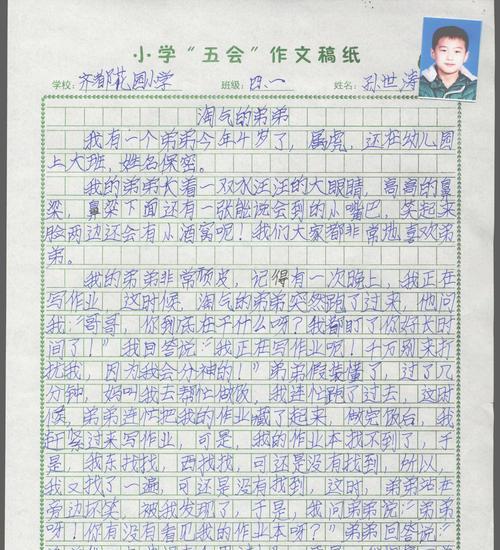 小学“五会”作文稿纸
学校：齐都花园小学 班级：四.一 姓名：孙世涛
淘气的弟弟
我有一个弟弟今年4岁了，属虎，还在幼儿园
上大班，姓名保密。
我的弟弟长着一双水汪汪的大眼睛，高高的鼻
梁，鼻梁下面还有一张能说会到的小嘴巴，笑起来
脸两边还会有小酒窝呢！我们大家都非常地喜欢弟
弟。
我的弟弟非常顽皮，记得有一次晚上，我正在
写作业，这时候，淘气的弟弟突然跑了过来，他问
我：“哥哥，你到底在干什么呀？我都盯了你好长时
间了！”我回答说：“我正在写作业呢！千万别来打
扰我，因为我会分神的！”弟弟假装懂了，过了几
分钟，妈叫我去帮忙做饭，我连忙跑了过去，这时
候，弟弟连忙把我的作业藏了起来，做完饭后，我
赶紧过来写作业，可是，我的作业本找不到了，于
是，我东找找，西找找，可还是没有找到，所以，
我又找了一遍，可还是没有找到，这时，弟弟站在
旁边坏笑，被我发现了，于是，我问弟弟说：“弟弟
呀！你有没有看见我的作业本呀？”弟弟回答说：“